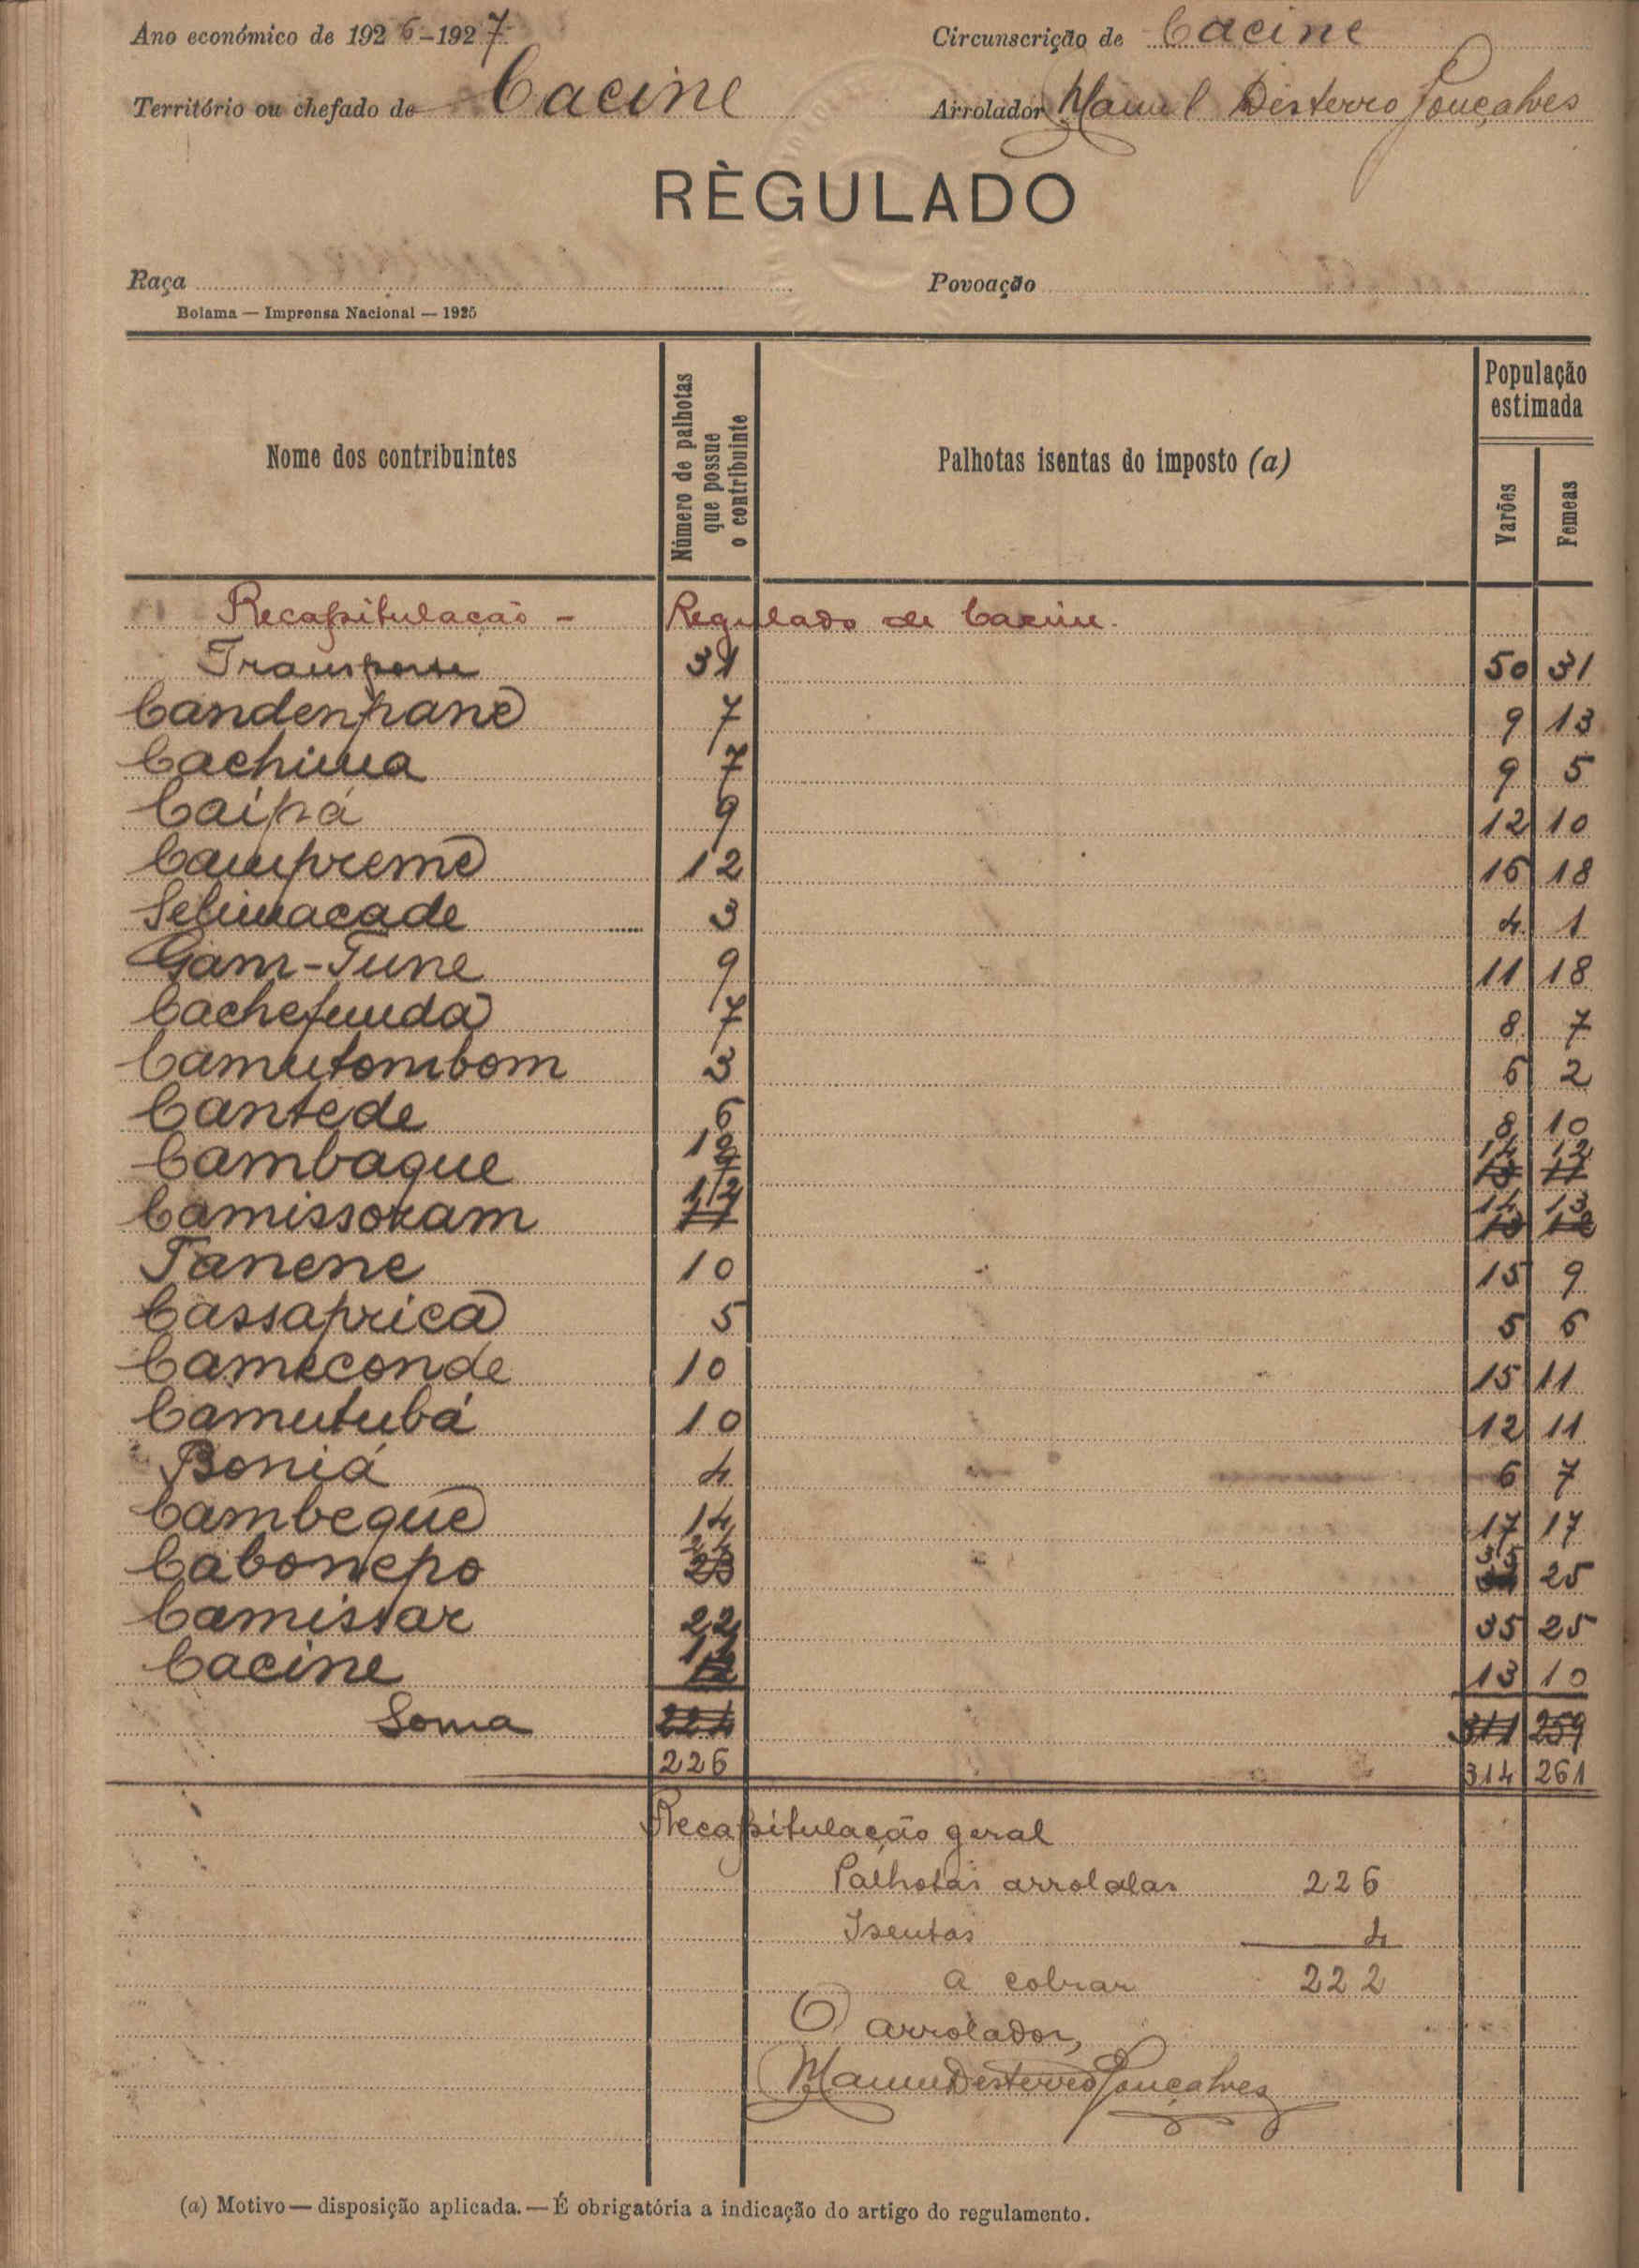 Ano económico de 1926-1927 Circunscrição de Cacine
Território ou chefado de Cacine Arrolador Manuel Desterro Gonçalves
RÈGULADO
Raça Povoação
Bolama — Imprensa Nacional — 1925
Nome dos contribuintes
Número de palhotas que possue o contribuinte
Palhotas isentas do imposto (a)
População estimada
Varões
Femeas
Recapitulação - Regulado de Cacine.
Transporte 31 50 31
Candenpane 7 9 13
Cachiua 7 9 5
Caipá 9 12 10
Campreme 12 16 18
Selimacade 3 4 1
Gam-Tune 9 11 18
Cachefunda 7 8 7
Camutombom 3 6 2
Cantede 6 8 10
Cambaque 12 14 12
Camissoram 12 14 13
Tanene 10 15 9
Cassaprica 5 5 6
Cameconde 10 15 11
Camutubá 10 12 11
Boniá 4 6 7
Cambeque 14 17 17
Cabonepo 24 35 25
Camissar 22 35 25
Cacine 13 10
Soma 224 311 259
226 314 261
Recapitulação geral
Palhotas arroladas 226
Isentas 4
a cobrar 222
O arrolador,
Manuel Desterro Gonçalves
(a) Motivo — disposição aplicada. — É obrigatória a indicação do artigo do regulamento.